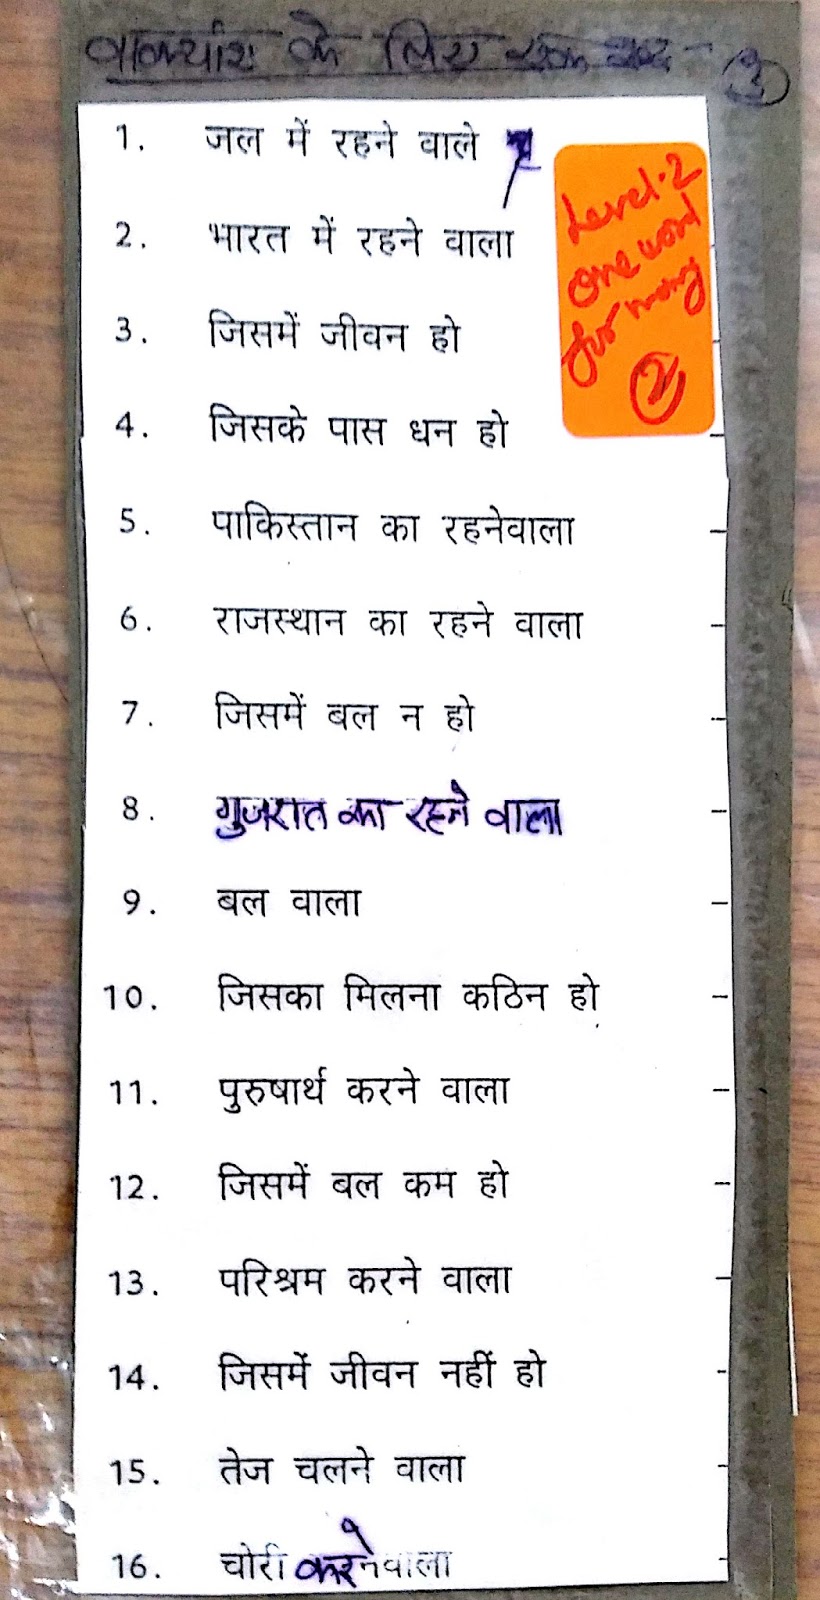 वाक्यांश के लिए एक शब्द - 3
1. जल में रहने वाले
Level-2
one word
for many
2
2. भारत में रहने वाला
3. जिसमें जीवन हो
4. जिसके पास धन हो
5. पाकिस्तान का रहनेवाला
6. राजस्थान का रहने वाला
7. जिसमें बल न हो
8. गुजरात का रहने वाला
9. बल वाला
10. जिसका मिलना कठिन हो
11. पुरुषार्थ करने वाला
12. जिसमें बल कम हो
13. परिश्रम करने वाला
14. जिसमें जीवन नहीं हो
15. तेज चलने वाला
16. चोरी करनेवाला